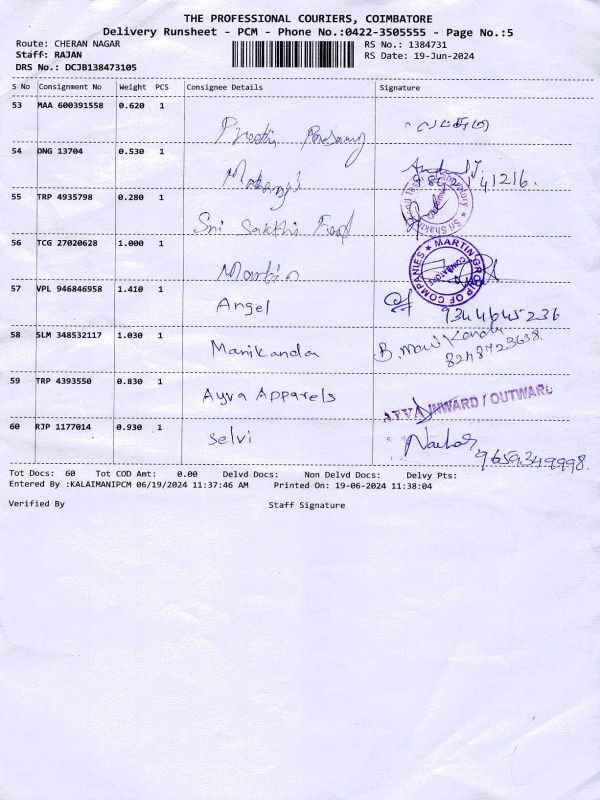 THE PROFESSIONAL COURIERS, COIMBATORE
Delivery Runsheet - PCM - Phone No.:0422-3505555 - Page No.:5
Route: CHERAN NAGAR RS No.: 1384731
Staff: RAJAN RS Date: 19-Jun-2024
DRS No.: DCJB138473105
S No Consignment No Weight PCS Consignee Details Signature
53 MAA 600391558 0.620 1
54 DNG 13704 0.530 1
41216.
55 TRP 4935798 0.280 1 Sri Sakthi Food
56 TCG 27020628 1.000 1 Martin MARTIN GROUP OF COMPANIES COIMBATORE
57 VPL 946846958 1.410 1 Angel 9344645236
58 SLM 348532117 1.030 1 Manikanda B. Mani Kanda
8248723638.
59 TRP 4393550 0.830 1 Ayva Apparels AYVA INWARD / OUTWARD
60 RJP 1177014 0.930 1 Selvi
9659349998.
Tot Docs: 60 Tot COD Amt: 0.00 Delvd Docs: Non Delvd Docs: Delvy Pts:
Entered By :KALAIMANIPCM 06/19/2024 11:37:46 AM Printed On: 19-06-2024 11:38:04
Verified By Staff Signature